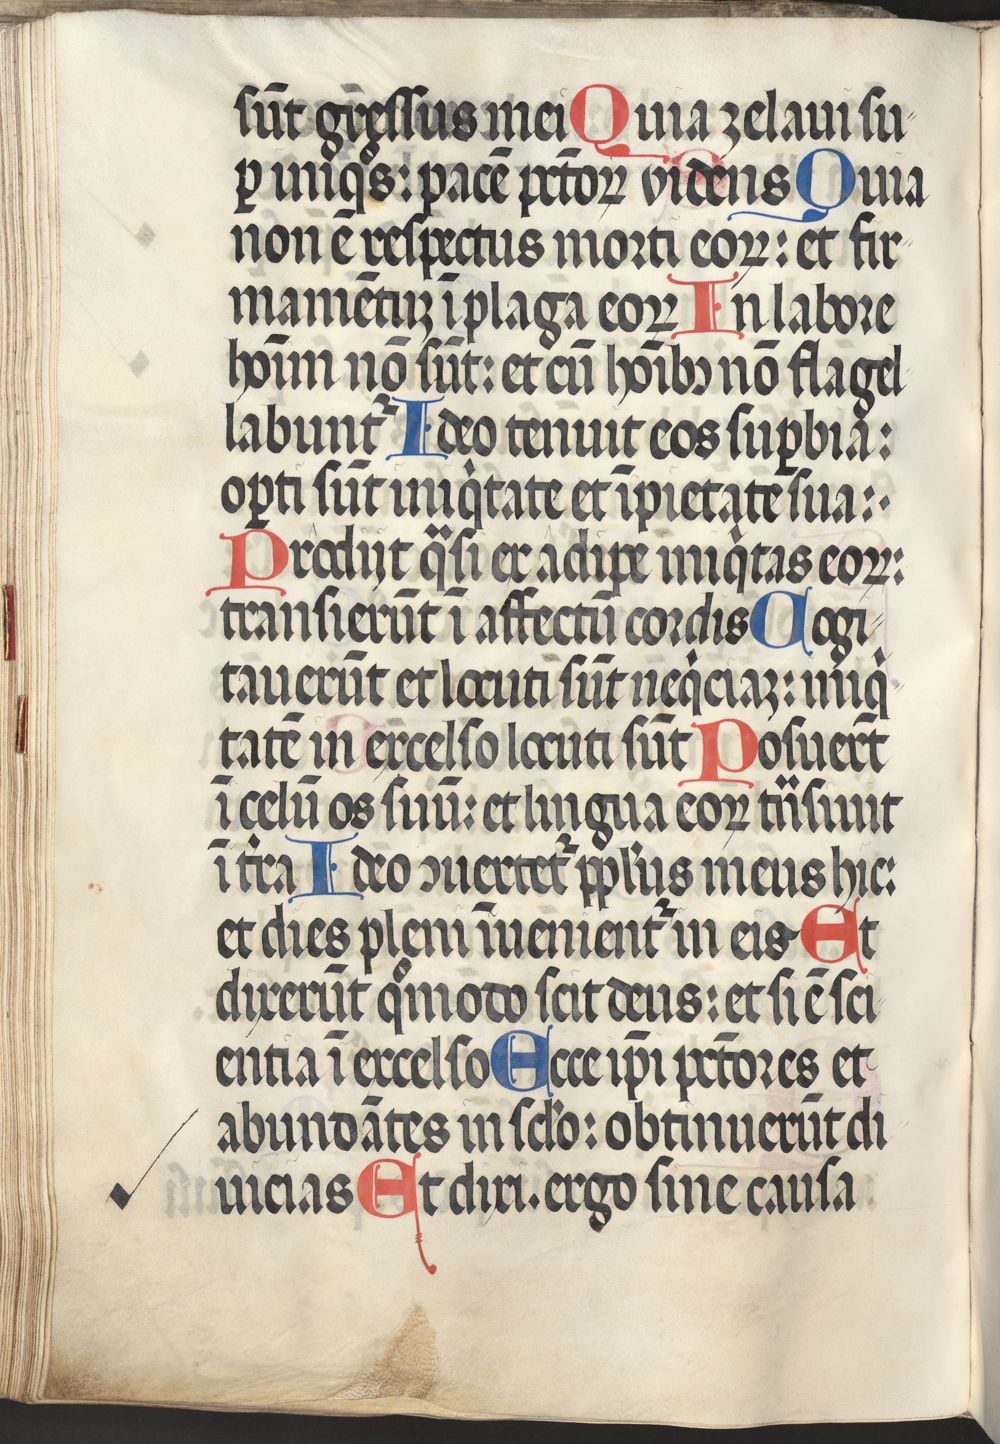 sūt gr̄essus mei Quia zelaui su
ꝑ iniqͦs : pacē pctō℞ videns Quia
non ē respectus morti eo℞ : et fir
mamētū ī plaga eo℞ In labore
hoīm nō sūt : et cū hoībꝫ nō flagel
labunt᷑ Ideo tenuit eos suꝑbia :
oꝑti sūt iniqͥtate et īpietate sua :
Prodijt qͣsi ex adipe iniqͥtas eo℞ :
transierūt ī affectū cordis Cogi
tauerūt et locuti sūt neqͥciaꝫ : iniqͥ
tatē in excelso locuti sūt Posuert̄
ī celū os suū : et lingua eo℞ tn̄siuit
ī t̄ra Ideo ꝯuertet᷑ ppl̄us meus hic :
et dies pleni īuenient᷑ in eis Et
dixerūt qͦmodo scit deus : et si ē sci
entia ī excelso Ecce ip̄i pctōres et
abundātes in scl̄o : obtinuerūt di
uicias Et dixi . ergo sine causa